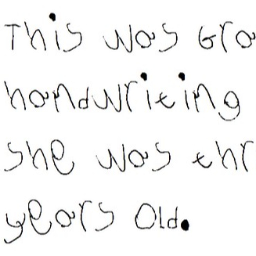 This was Gra
handwriting
She was thr
years old.